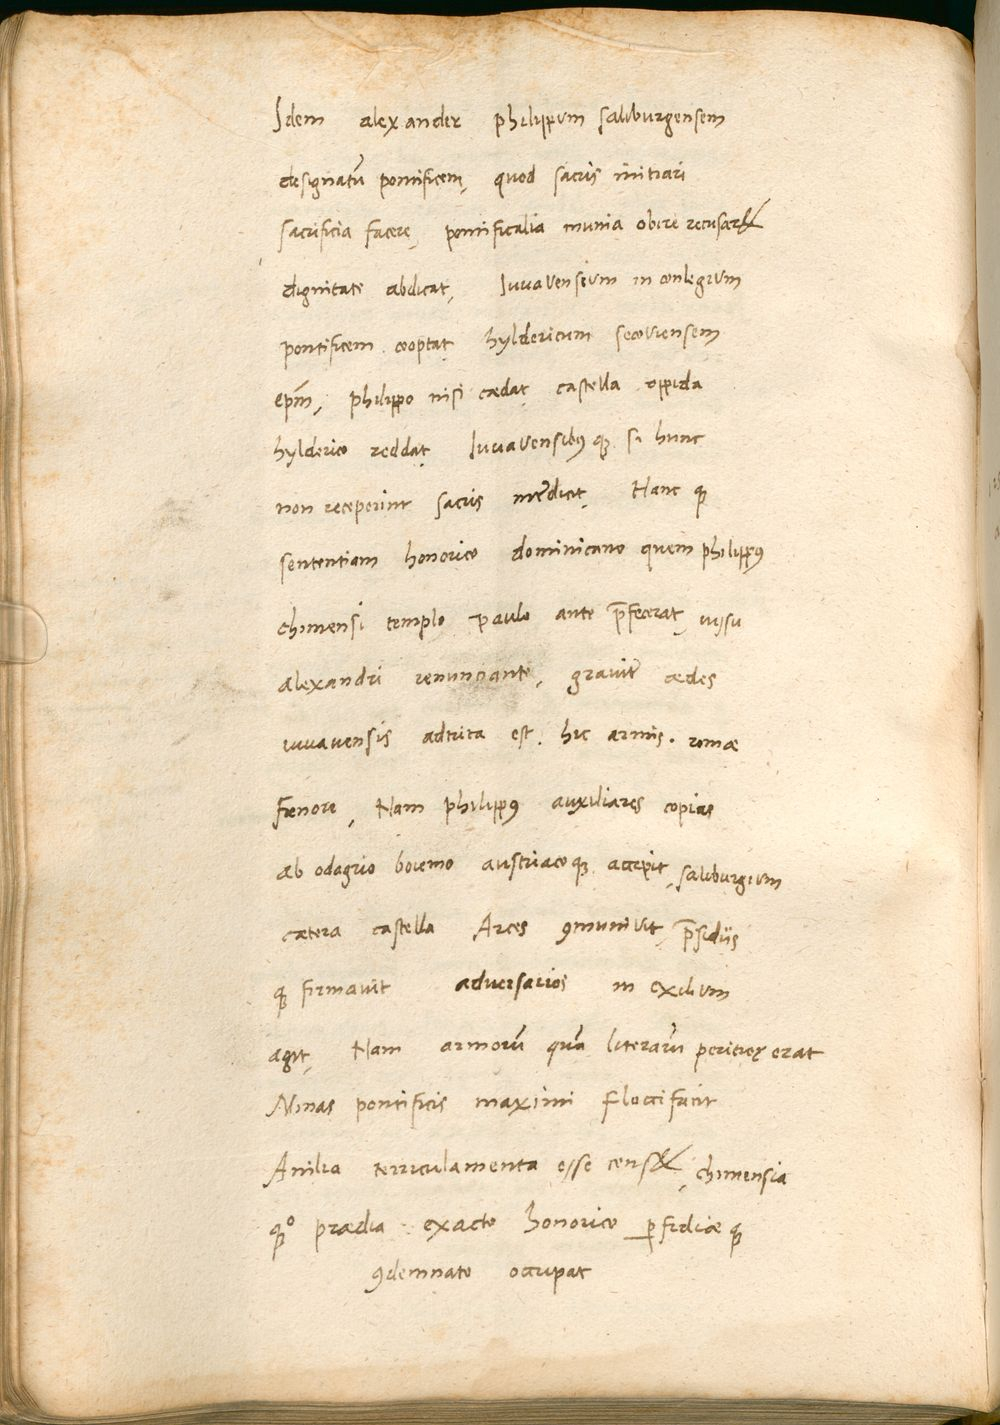 Idem alexander philippum saltzburgensem
designatū pontificem, quod sacris initiari
sacrificia facere, pontificalia munia obire recusar&
dignitate abdicat, Iuuauensium in conlegium
pontificem cooptat hyldericum secouiensem
ep̄m, philippo nisi cædat castella oppida
hylderico reddat Iuuauensibꝰ qꝫ si hunc
non receperint sacris īterdicit, Hanc qꝫ
sententiam honorico dominicano quem philippꝰ
chimensi templo paulo ante p̄fecerat, iussu
alexandri renunciante, grauiť ædes
iuuauensis adtrita est. hic armis. romæ
fœnore, Nam philippꝰ auxiliares copias
ab odagrio boiemo austriacoqꝫ accepit, saltzburgium
cætera castella Arces ꝯmuniuit, p̄sidijs
qꝫ firmauit aduersarios in exilium
agit, Nam armorū quā literarū peritior erat
Minas pontificis maximi floccifacit
Anilia terriculamenta esse cens&, chimensia
qꝫº prædia exacto honorico ꝑfidiæ qꝫ
ꝯdemnato occupat